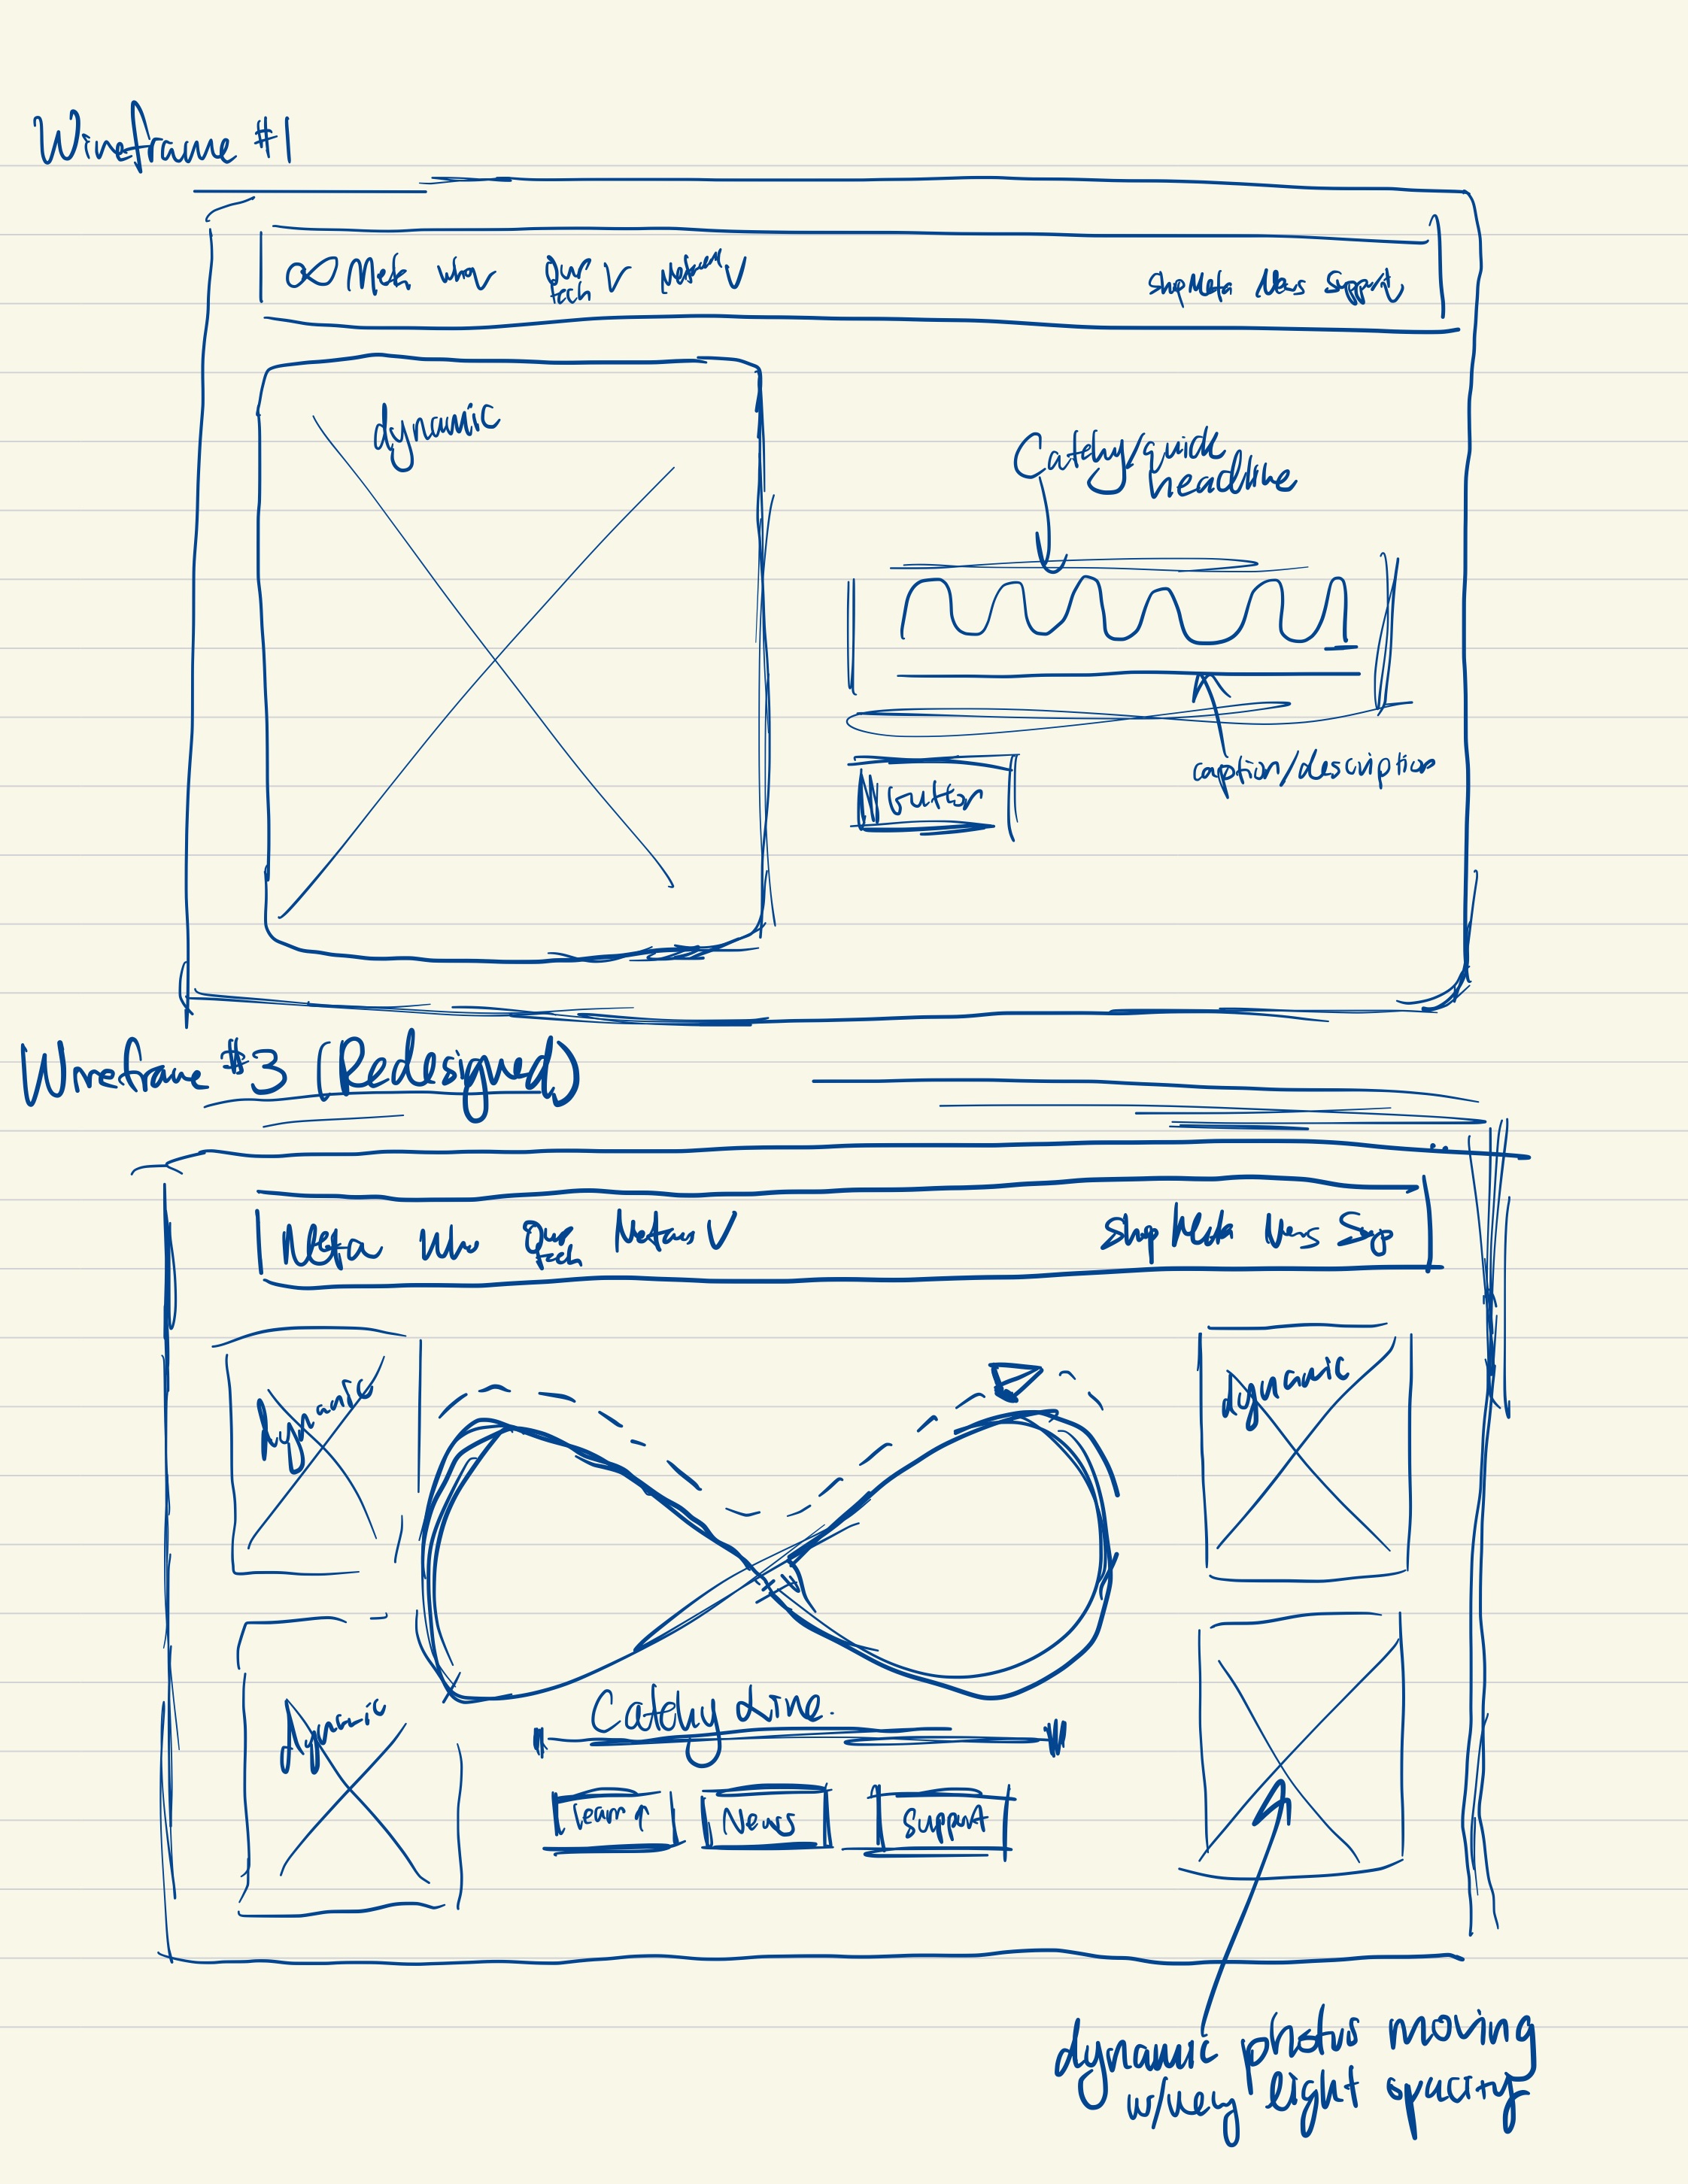 Wireframe #1
∞ Meta who Our tech V Metaver V
Shop Meta News Support
dynamic
Catchy/quick
headline
caption/description
button
Wireframe #3 (Redesigned)
Meta Who Our tech Metavs V
Shop Meta News Sup
dynamic
dynamic
dynamic
Catchy Line.
Learn
News
Support
dynamic photos moving
w/very light opacity